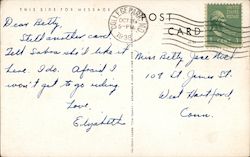 THIS SIDE FOR MESSAGE
POST
CARD
Dear Betty,
Still another card.
Tell Sabra she'd like it
here. I do. Afraid I
won't get to go riding
Love.
Elizabeth
OCT
1938
Miss Betty Jane Root
109 St. James St.
West Hartford
Conn.